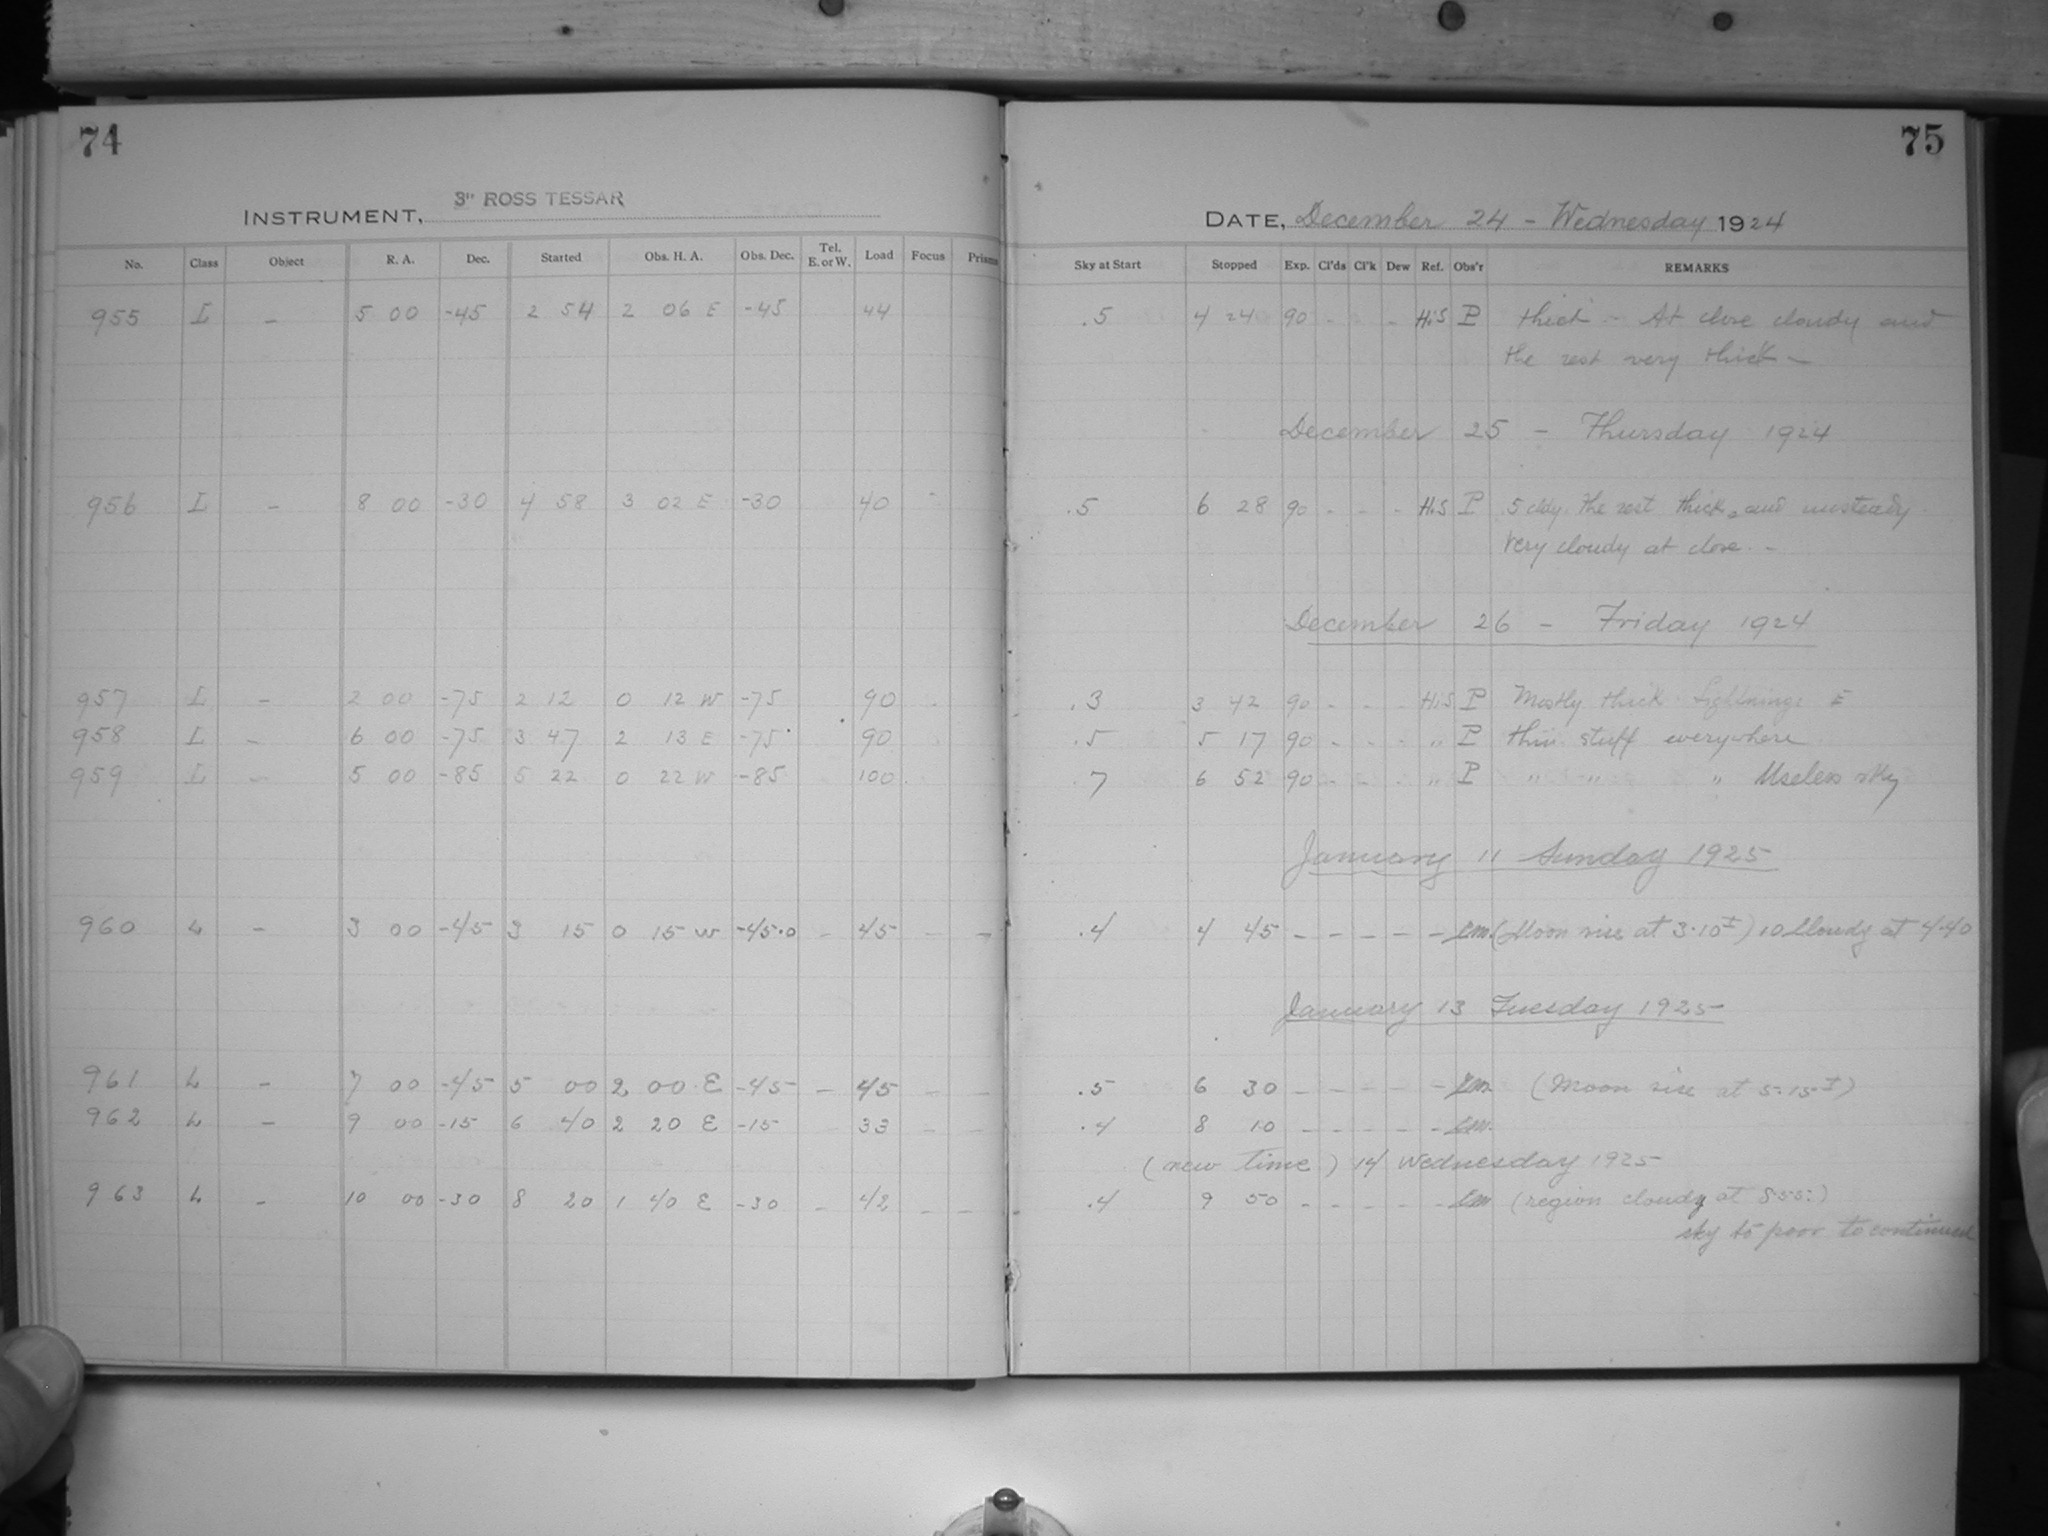 74
INSTRUMENT, 3" ROSS TESSAR
No. Class Object R. A. Dec. Started Obs. H. A. Obs. Dec. Tel. E. or W. Load Focus Prisms
955 L - 5 00 -45 2 54 2 06 E -45 44
956 L - 8 00 -30 4 58 3 02 E -30 40
957 L - 2 00 -75 2 12 0 12 W -75 90
958 L - 6 00 -75 3 47 2 13 E -75 90
959 L - 5 00 -85 5 22 0 22 W -85 100
960 L - 3 00 -45 3 15 0 15 W -45.0 - 45 - -
961 L - 7 00 -45 5 00 2 00 E -45 - 45 - -
962 L - 9 00 -15 6 40 2 20 E -15 33 - -
963 L - 10 00 -30 8 20 1 40 E -30 - 42 - - -
75
DATE, December 24 - Wednesday 1924
Sky at Start Stopped Exp. Cl'ds Cl'k Dew Ref. Obs'r REMARKS
.5 4 24 90 - - - HiS P thick - At close cloudy and
the rest very thick -
December 25 - Thursday 1924
.5 6 28 90 - - - HiS P 5 cldy. The rest thick and unsteady
Very cloudy at close. -
December 26 - Friday 1924
.3 3 42 90 - - - HiS P Mostly thick. Lightnings E
.5 5 17 90 - - - " P thin stuff everywhere
.7 6 52 90 - - - " P " " " Useless sky
January 11 Sunday 1925
.4 4 45 - - - - - (Moon rise at 3.10±) 10 Cloudy at 4.40
January 13 Tuesday 1925
.5 6 30 - - - - - (Moon rise at 5.15±)
.4 8 10 - - - - -
(new time) 14 Wednesday 1925
.4 9 50 - - - - - (region cloudy at 8.55.)
sky to poor to continued